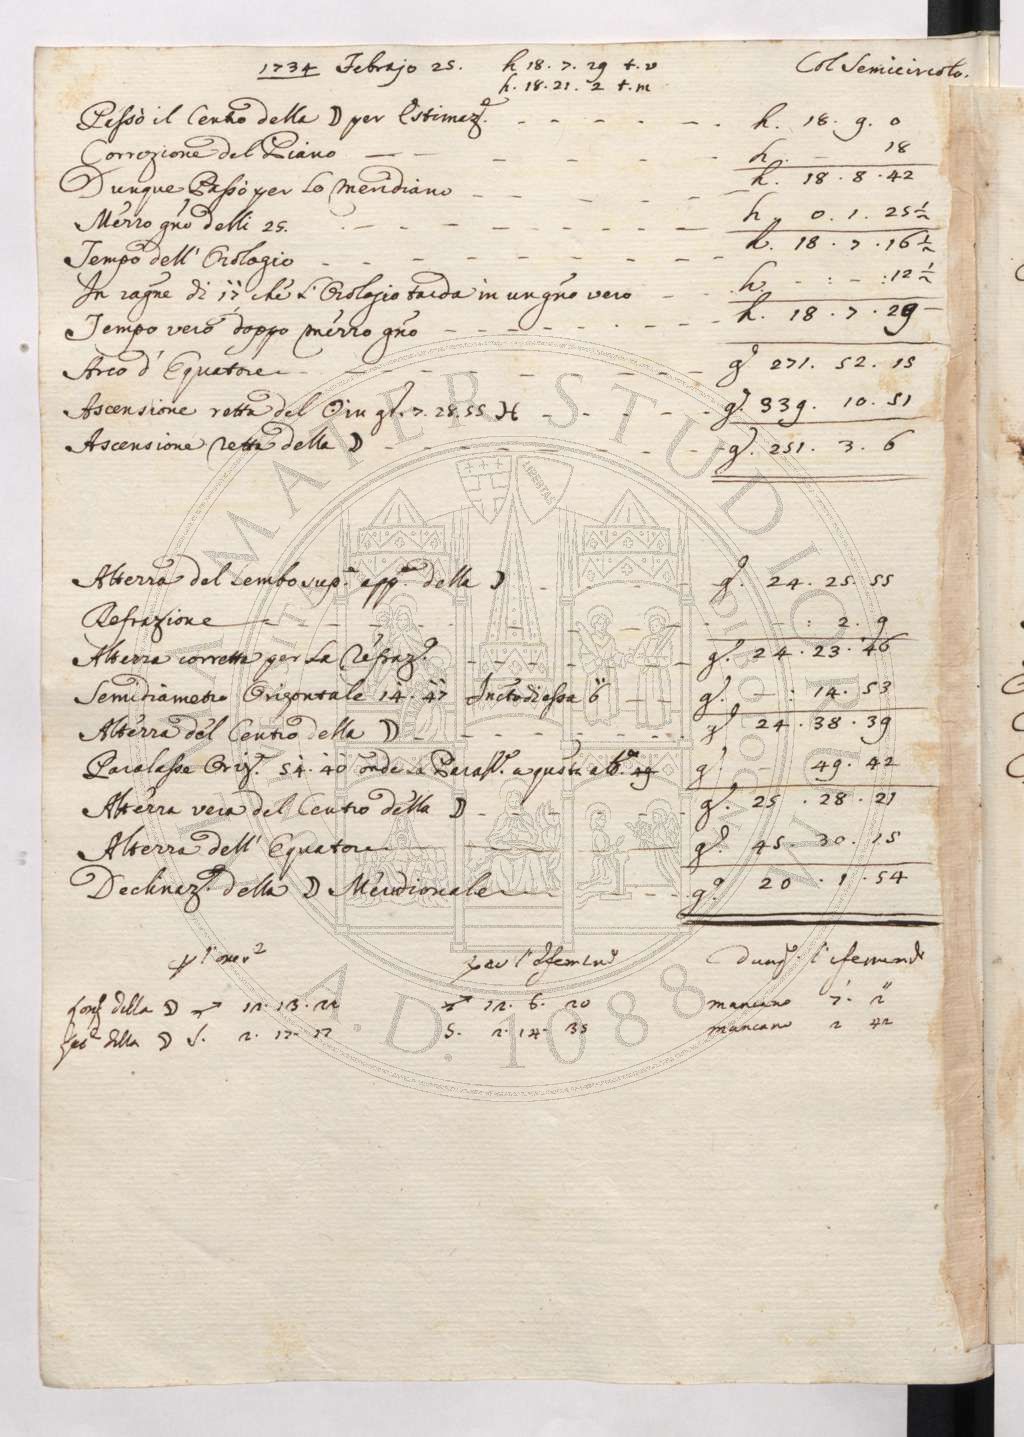 1734 Febrajo 25. h 18. 7. 29 t. v Col Semicircolo.
h. 18. 21. 2 t. m
Passò il Centro della ☽ per Estimaz.e h. 18. 9. 0
Correzione del Piano h. — 18
Dunque Passò per lo meridiano h. 18. 8. 42
Mezzo gno delli 25. h. 0. 1. 25 ½
Tempo dell' Orologio h. 18. 7. 16 ½
In ragne di 17 che l'Orologio tarda in un gno vero h. — : — : 12 ½
Tempo vero doppo mezzo gno h. 18. 7. 29
Arco d' Equatore g.i 271. 52. 15
Ascensione retta del ☉ in g.i 7. 28. 55 ♓ g.i 339. 10. 51
Ascensione Retta della ☽ g.i 251. 3. 6
Altezza del Lembo sup.e app.e della ☽ g.i 24. 25. 55
Refrazione — : 2. 9
Altezza corretta per la Refraz.e g.i 24. 23. 46
Semidiametro Orizontale 14. 47 6 g.i — : 14. 53
Altezza del Centro della ☽ g.i 24. 38. 39
Paralasse Oriz.e 54. 40 onde la Parall.e g.i — 49. 42
Altezza vera del Centro della ☽ g.i 25. 28. 21
Altezza dell' Equatore g.i 45. 30. 15
Declinaz.e della ☽ Meridionale g.i 20. 1. 54
p l'oner.e per l'Efemind Dunq. l'efemind
Long della ☽ ♐ 12. 13. 22 ♐ 12. 6. 20 mancano 7' 2"
Lat.e della ☽ S. 2. 17. 17 S. 2. 14. 35 mancano 2 42
ALMA MATER STUDIORUM
LIBERTAS
A.D. 1088